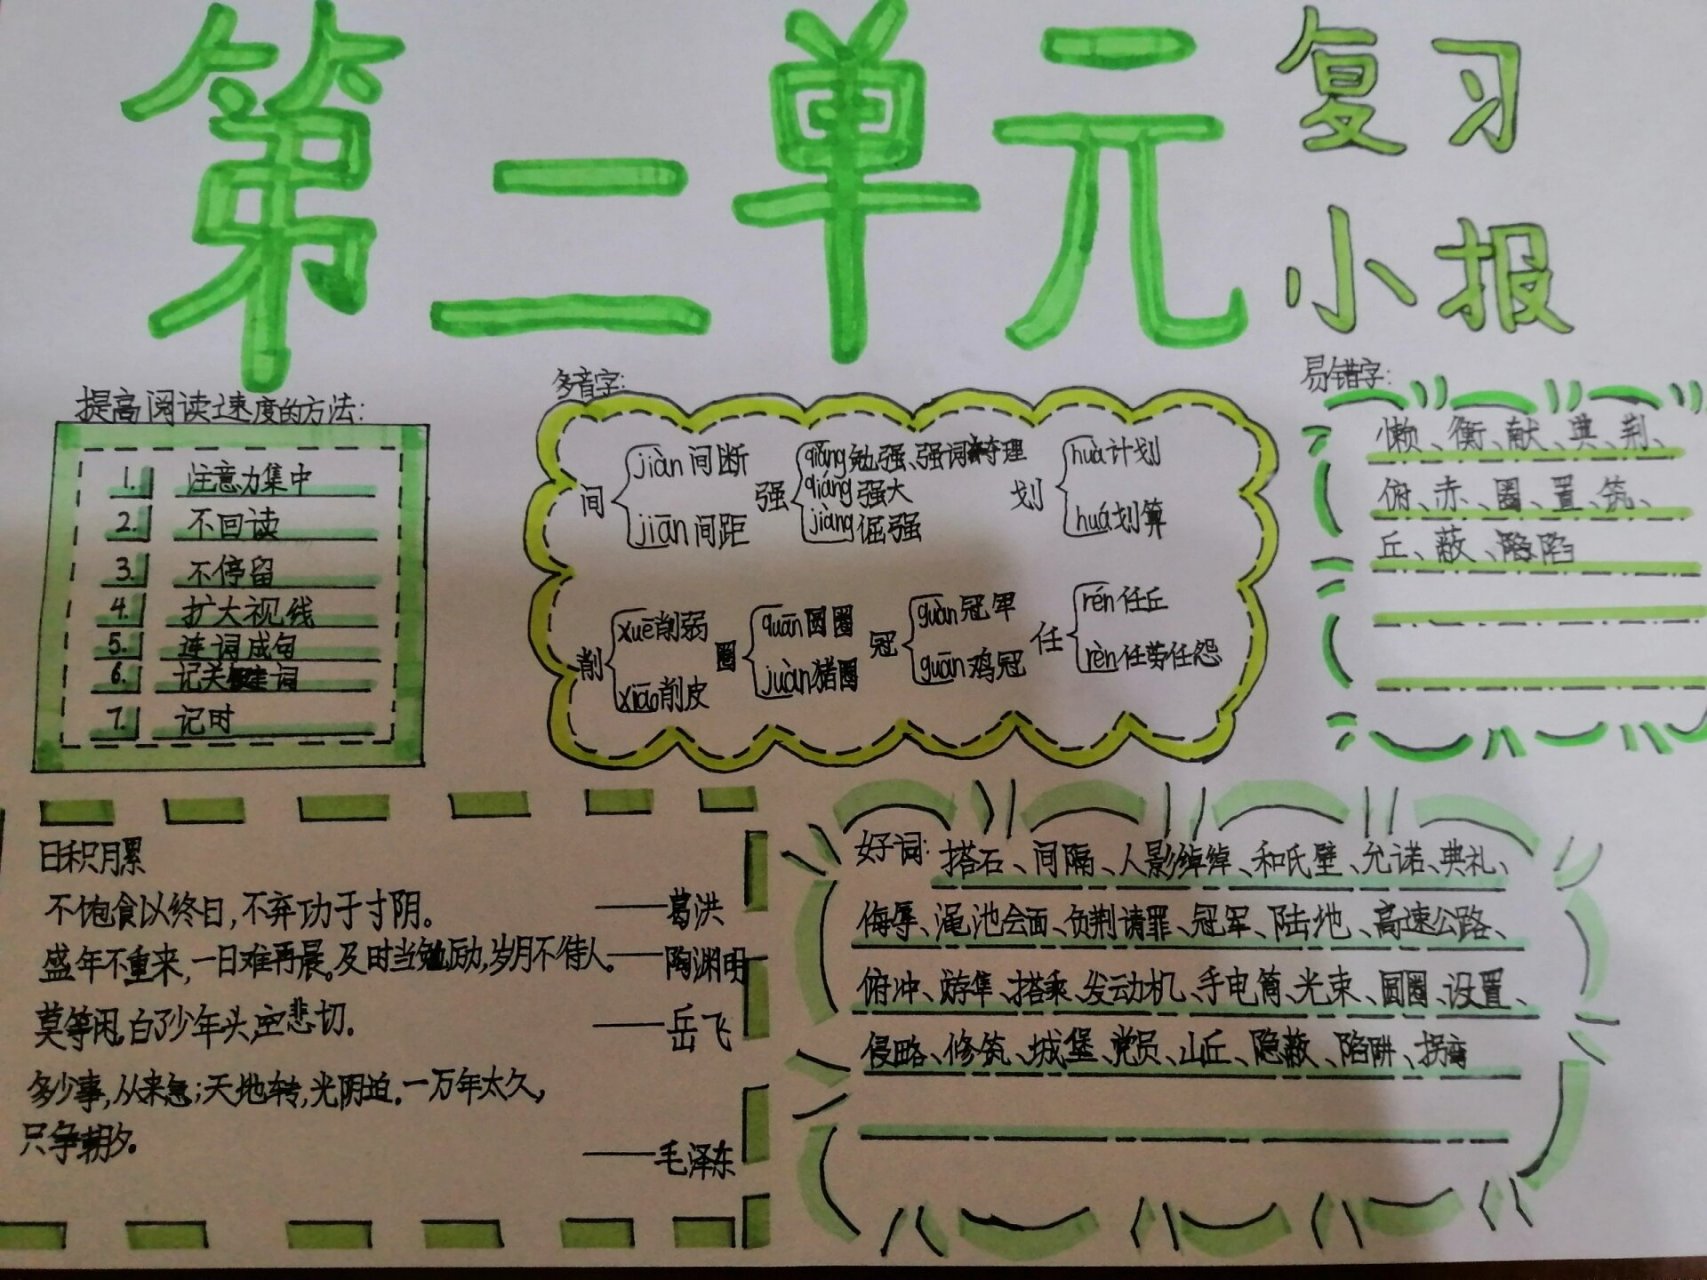 第二单元
复习
小报
提高阅读速度的方法:
1. 注意力集中
2. 不回读
3. 不停留
4. 扩大视线
5. 连词成句
6. 记关键词
7. 记时
多音字:
间 jiàn 间断 jiān 间距
强 qiǎng 勉强、强词夺理 qiáng 强大 jiàng 倔强
划 huà 计划 huá 划算
削 xuē 削弱 xiāo 削皮
圈 quān 圆圈 juàn 猪圈
冠 guàn 冠军 guān 鸡冠
任 rén 任丘 rèn 任劳任怨
易错字:
懒、衡、献、典、荆、
俯、赤、圈、置、筑、
丘、蔽、陷
日积月累
不饱食以终日,不弃功于寸阴。 ——葛洪
盛年不重来,一日难再晨。及时当勉励,岁月不待人。——陶渊明
莫等闲,白了少年头,空悲切. ——岳飞
多少事,从来急;天地转,光阴迫.一万年太久,
只争朝夕。
——毛泽东
好词: 搭石、间隔、人影绰绰、和氏璧、允诺、典礼、
侮辱、渑池会面、负荆请罪、冠军、陆地、高速公路、
俯冲、游隼、搭乘、发动机、手电筒、光束、圆圈、设置、
侵略、修筑、城堡、党员、山丘、隐蔽、陷阱、拐弯